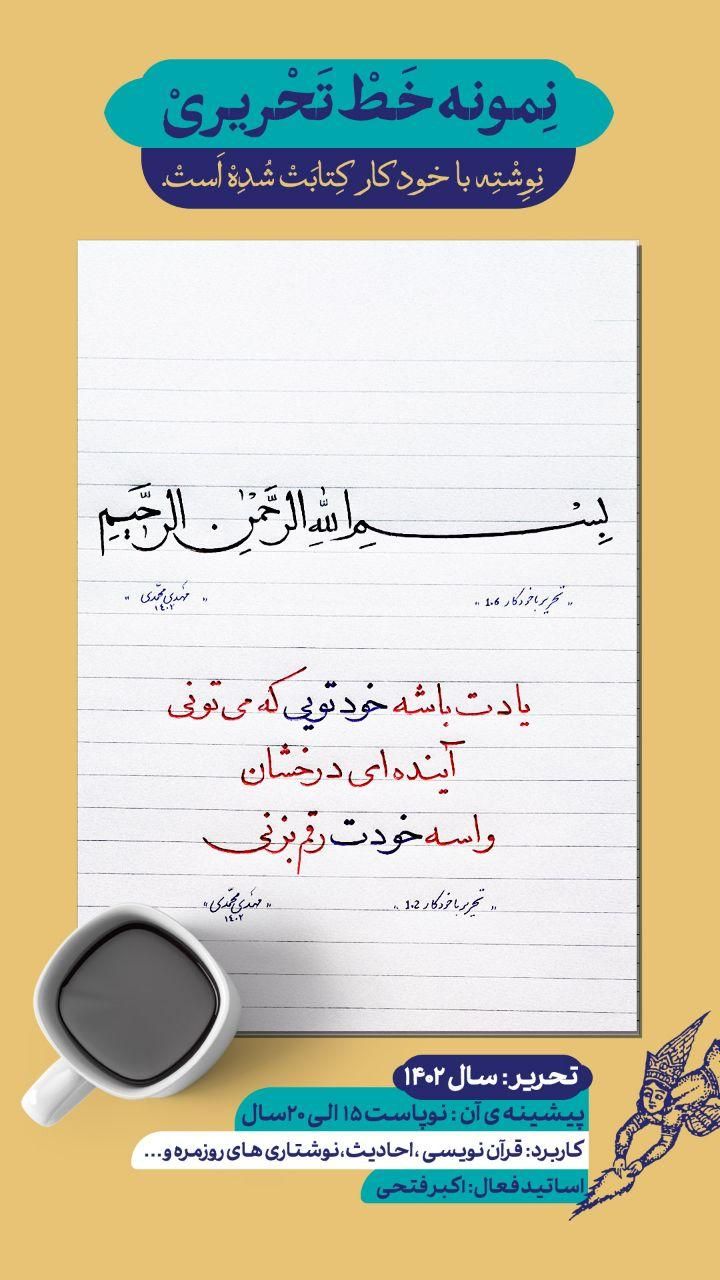 نِمونه خَطْ تَحْریریْ
نِوِشْتِه با خودکار کِتابَتْ شُدِهْ اَستْ.
بِسْمِ اللهِ الرَّحْمٰنِ الرَّحیمِ
"تحریر با خودکار 1.6" "مهدی محمّدی ۱۴۰۲"
یادت باشه خود تویی که می تونی
آینده ای درخشان
واسه خودت رقم بزنی
"تحریر با خودکار 1.2" "مهدی محمّدی ۱۴۰۲"
تحریر : سال ۱۴۰۲
پیشینه ی آن : نوپاست ۱۵ الی ۲۰سال
کاربرد: قرآن نویسی ،احادیث،نوشتاری های روزمره و...
اساتید فعال: اکبر فتحی